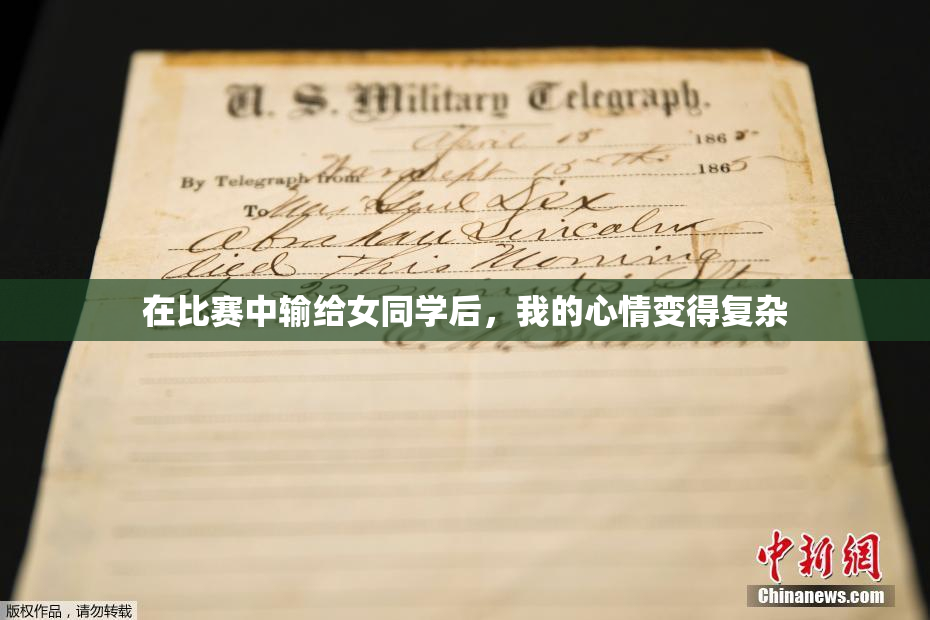 U. S. Military Telegraph.
April 15 1865
By Telegraph from War Dept 15th 1865
To Maj Genl Dix
Abraham Lincoln
died This Morning
22 minutes after
在比赛中输给女同学后，我的心情变得复杂
中新網
Chinanews.com
版权作品，请勿转载